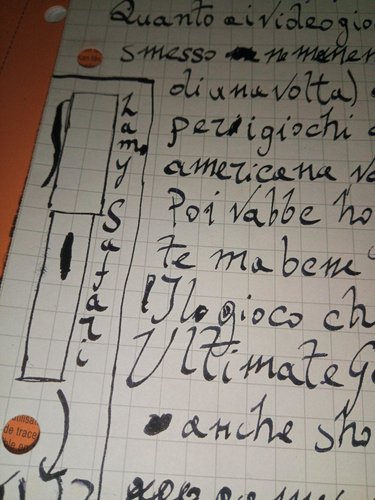 Quanto ai videogio
smesso
di una volta)
per i giochi
americana va
Poi vabbe ho
te ma bene
Il gioco ch
Ultimate G
anche sho
Lamy Safari
de trace